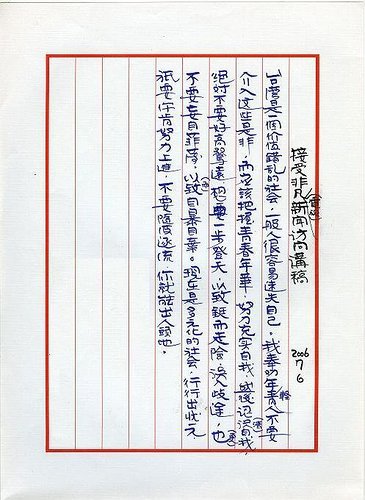 接受非凡(電視)新闻访问講稿
2006
7
6
台灣是一個价值錯乱的社会,一般人很容易迷失自己。我奉劝年青人不要
介入这些是非,而应該把握青春年華,努力充实自我,自我,
絕对不要好高騖遠,想要一步登天,以致铤而走险,误入歧途,也
不要妄自菲薄,以致自暴自棄。現在是多元化的社会,行行出状元
祇要你肯努力上進,不要随波逐流,你就能出人頭地。